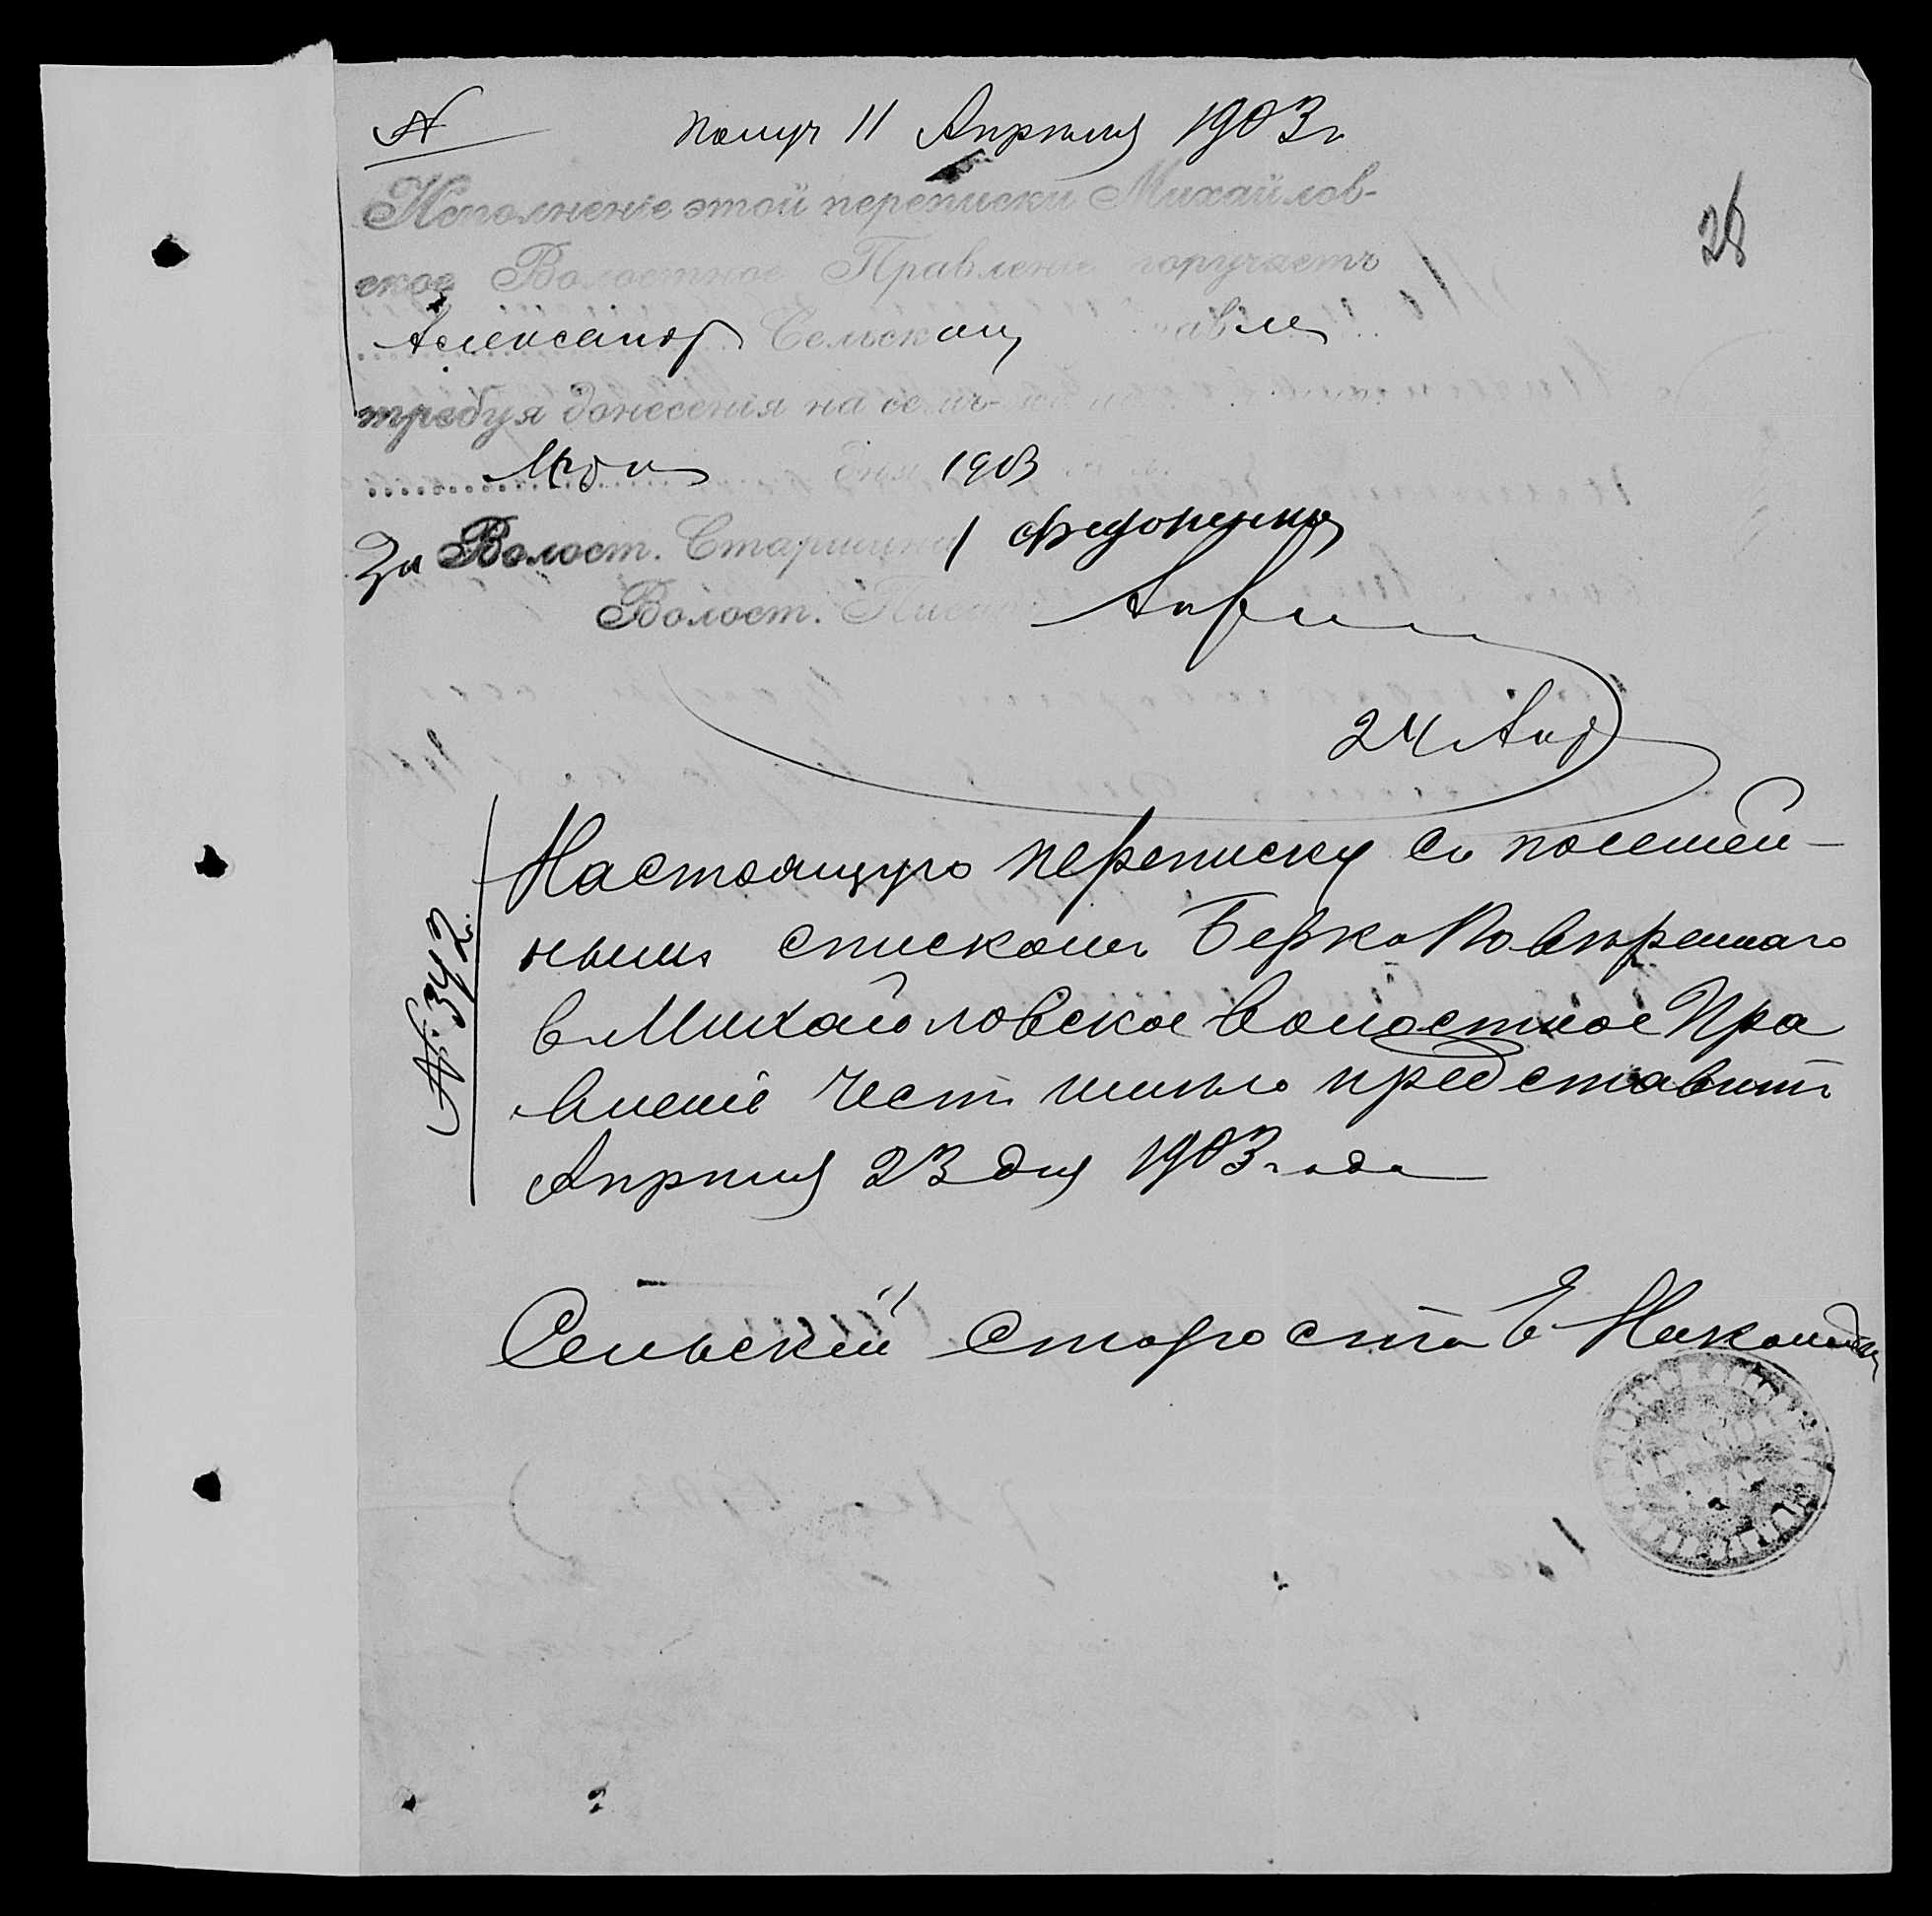 № Получ 11 Апрѣля 1903 г
28
Исполненіе этой переписки Михайлов-
ское Волостное Правленіе поручаетъ
Александр Сельском авле
требуя донесенія на семъ-же
дня 1903
За Волост. Старшины Федоренко
Волост. Писа
24 Апр
№ 342.
Настоящую переписку съ посемей-
нымъ спискомъ Берка Повѣреннаго
в Михайловское Волостное Пра
вленіе честь имѣю представить
Апрѣля 23 дня 1903 года
Сельскій Староста Е